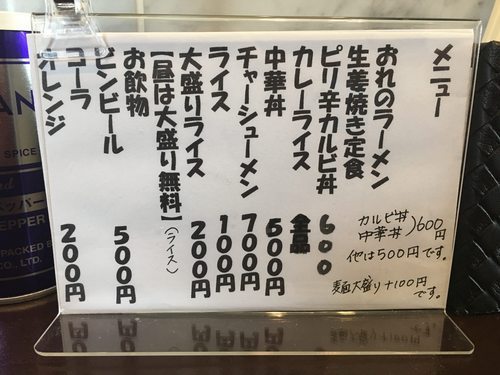 メニュー
おれのラーメン
生姜焼き定食
ピリ辛カルビ丼 600
カレーライス 全品
中華丼 600円
チャーシューメン 700円
ライス 100円
大盛りライス 200円
【昼は大盛り無料】(ライス)
お飲物
ビンビール 500円
コーラ
オレンジ 200円
カルビ丼
中華丼 )600円
他は500円です。
麺大盛り+100円
です。
AN
SPICE
ペッパー
PEPPER
PACKED B
CO., LTD.